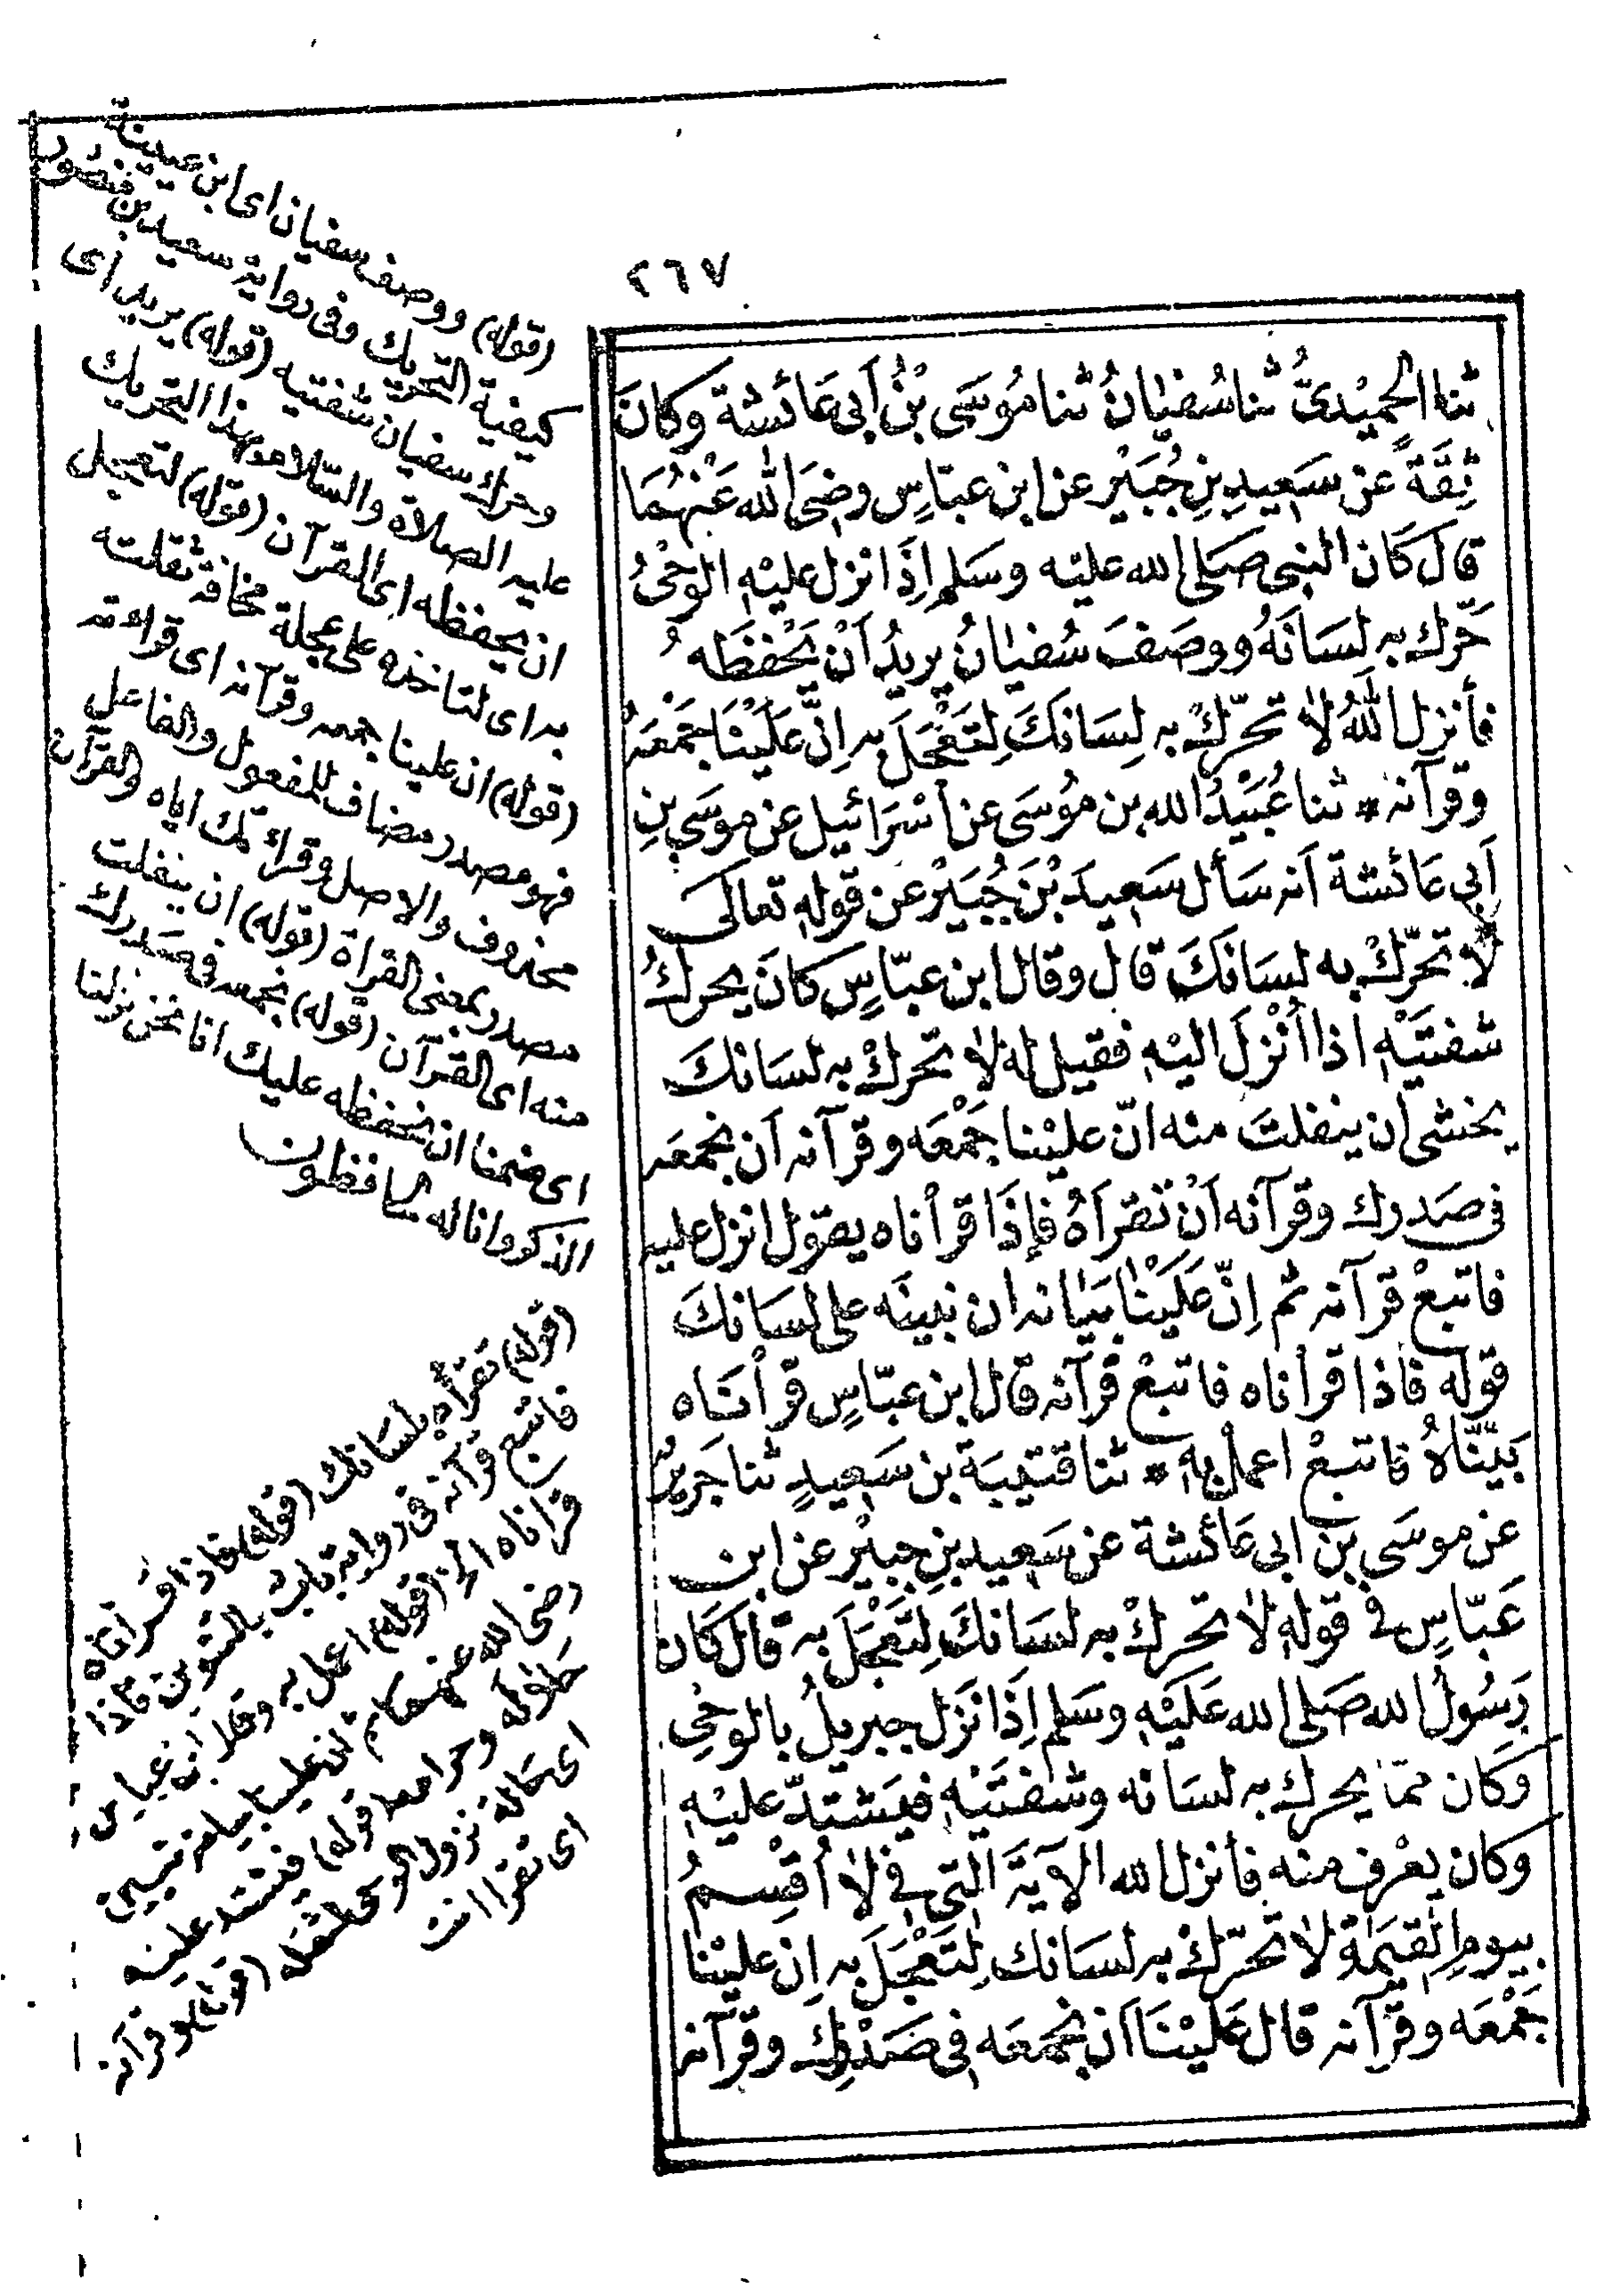 ٢٦٧
ثنا الحُمَيْدىُّ ثنا سُفيٰانُ ثنا مُوسَى بْنُ أَبى عَائشة وكانَ
ثِقَةً عن سَعِيدِ بنِ جُبَيْر عن ابن عبّاسٍ رضىَ الله عَنْهُمَا
قال كَان النبى صَلى الله عليْه وسَلم إِذَا نزل عليْهِ الوحْىُ
حَرّك به لسَانَهُ ووصَفَ سُفيٰانُ يريدُ اَنْ يَحْفظَهُ
فأنزل اللهُ لاٰ تحرّكْ به لِسَانكَ لِتَعْجَلَ به اِنّ عَلَيْنَا جَمْعَهُ
وقرآنه * ثنا عُبَيْدُ الله بن مُوسَى عن أسْرَائيل عن موسَى بنِ
اَبى عَائشة اَنه سَأل سَعِيدَ بْنَ جُبَيْر عن قوله تعالىَ
لاٰ تحرّكْ به لسَانكَ قال وقال ابن عبّاسٍ كانَ يحركُ
شفتَيْهِ اذا أُنْزِلَ اليْهِ فقيل له لاٰ تحركْ به لسَانكَ
يخشى اَن ينفلتَ منه انّ عليْنا جَمْعَه وقرآنه اَن نجمعَه
فى صَدرك وقرآنه اَنْ تقرَأهُ فإذَا قرأناه يقول انزل عليه
فاتبعْ قرآنه ثم اِنّ عَلَيْنٰا بيَانه ان نبينَه على لسَانكَ
قوله فاذا قرأناه فاتبعْ قرآنه قال ابن عبّاسٍ قرأنَاه
بَيَّنَّاهُ فاتبعْ اعمل بهِ * ثنا قتيبَة بن سَعِيدٍ ثنا جَريرٌ
عن موسَى بن ابى عَائشة عن سَعِيد بنِ جبيْر عن ابن
عَبّاسٍ فى قولهِ لاٰ تحركْ به لسَانكَ لِتَعْجَلَ به قال كَان
رَسُولُ الله صَلى الله عَلَيْهِ وسَلم إذَا نَزَل جبريلُ بالوحْىِ
وكَان ممّا يحرك به لسَانه وشفتَيْهِ فيَشتدّ عليْهِ
وكان يعْرف منه فأنزل الله الآيَةَ التى فى لاٰ أُقْسِمُ
بيومِ القيٰمَةِ لاٰ تحرّكْ به لسَانك لِتَعْجَلَ به اِن عليْنٰا
جَمْعَه وقرآنه قال عَليْنَا اَن نجمَعَه فى صَدْرِك وقرآنه
(قوله) ووصف سفيان اى ابن عيينة
كيفية التحريك وفى رواية سعيد بن منصور
وحرك سفيان شفتيه (قوله) يريد اى
عليه الصلاة والسّلام بهذا التحريك
ان يحفظه اى القرآن (قوله) لتعجل
به اى لتأخذه على عجلة مخافة تفلته
(قوله) ان علينا جمعه وقرآنه اى قراءته
فهو مصدر مضاف للمفعول والفاعل
محذوف والاصل وقراءتك اياه والقرآن
مصدر بمعنى القراءة (قوله) ان ينفلت
منه اى القرآن (قوله) نجمعه فى صَدرك
اى ضمنا ان نحفظه عليك انا نحن نزلنا
الذكر وانا له لحافظون
(قوله) تقرأه بلسَانك (قوله) فاذا قرأناه
فاتبع قرآنه فى رواية باب بالتنوين فاذا
قرأناه الخ (قوله) اعمل به وقال ابن عباس
رضى الله عنهما ثم ان علينا بيانه تبيين
حلاله وحرامه (قوله) فيشتد عليه
اى حالة نزول الوحى لثقله (قوله) وقرآنه
اى تقرأ انت